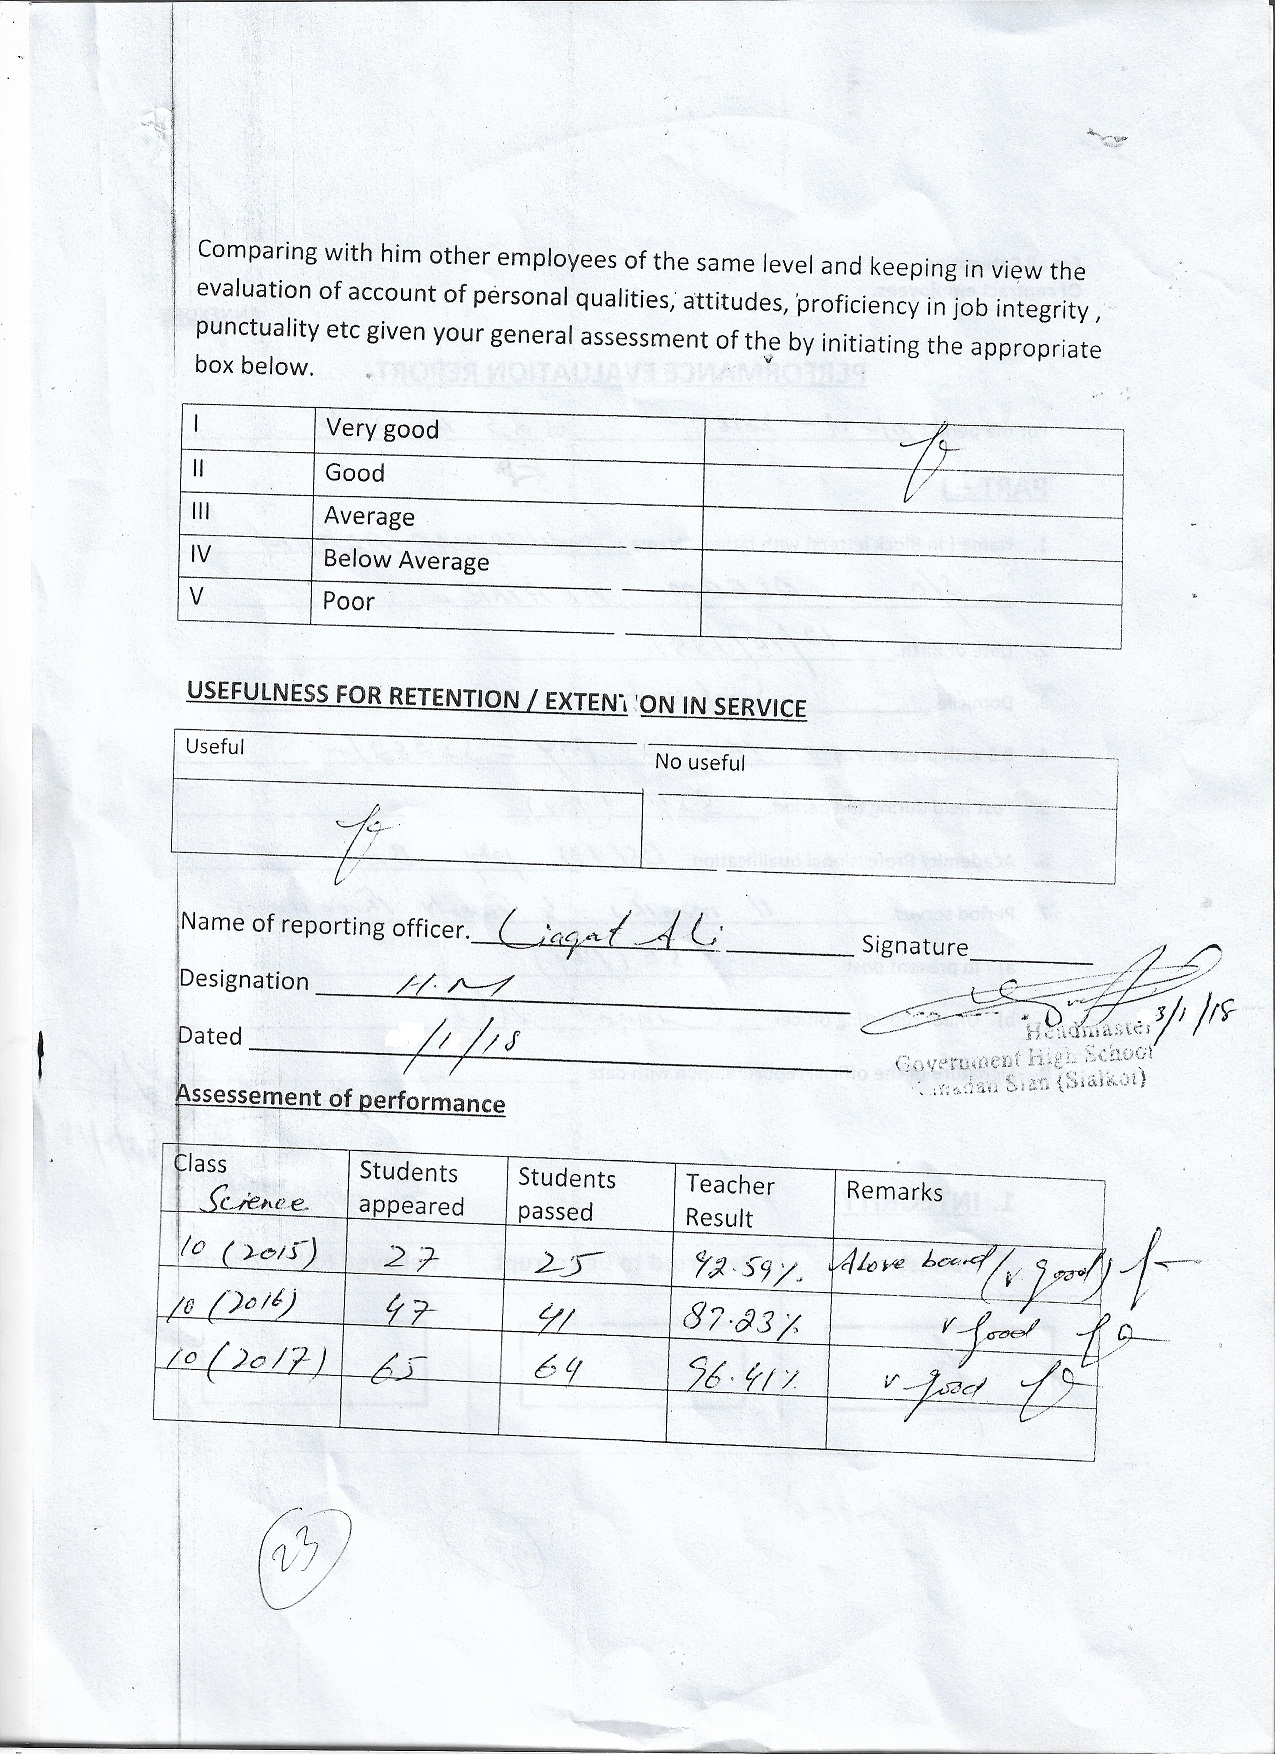 Comparing with him other employees of the same level and keeping in view the
evaluation of account of personal qualities, attitudes, proficiency in job integrity ,
punctuality etc given your general assessment of the by initiating the appropriate
box below.
I Very good
II Good
III Average
IV Below Average
V Poor
USEFULNESS FOR RETENTION / EXTENTION IN SERVICE
Useful No useful
Name of reporting officer. Liaqat Ali Signature
Designation H.M
3/1/18
Dated /1/18
Headmaster
Government High School
(Sialkot)
Assessement of performance
Class Science Students appeared Students passed Teacher Result Remarks
10 (2015) 27 25 92.59% Above board (v good)
10 (2016) 47 41 87.23% v good
10 (2017) 65 64 96.41% v good
23